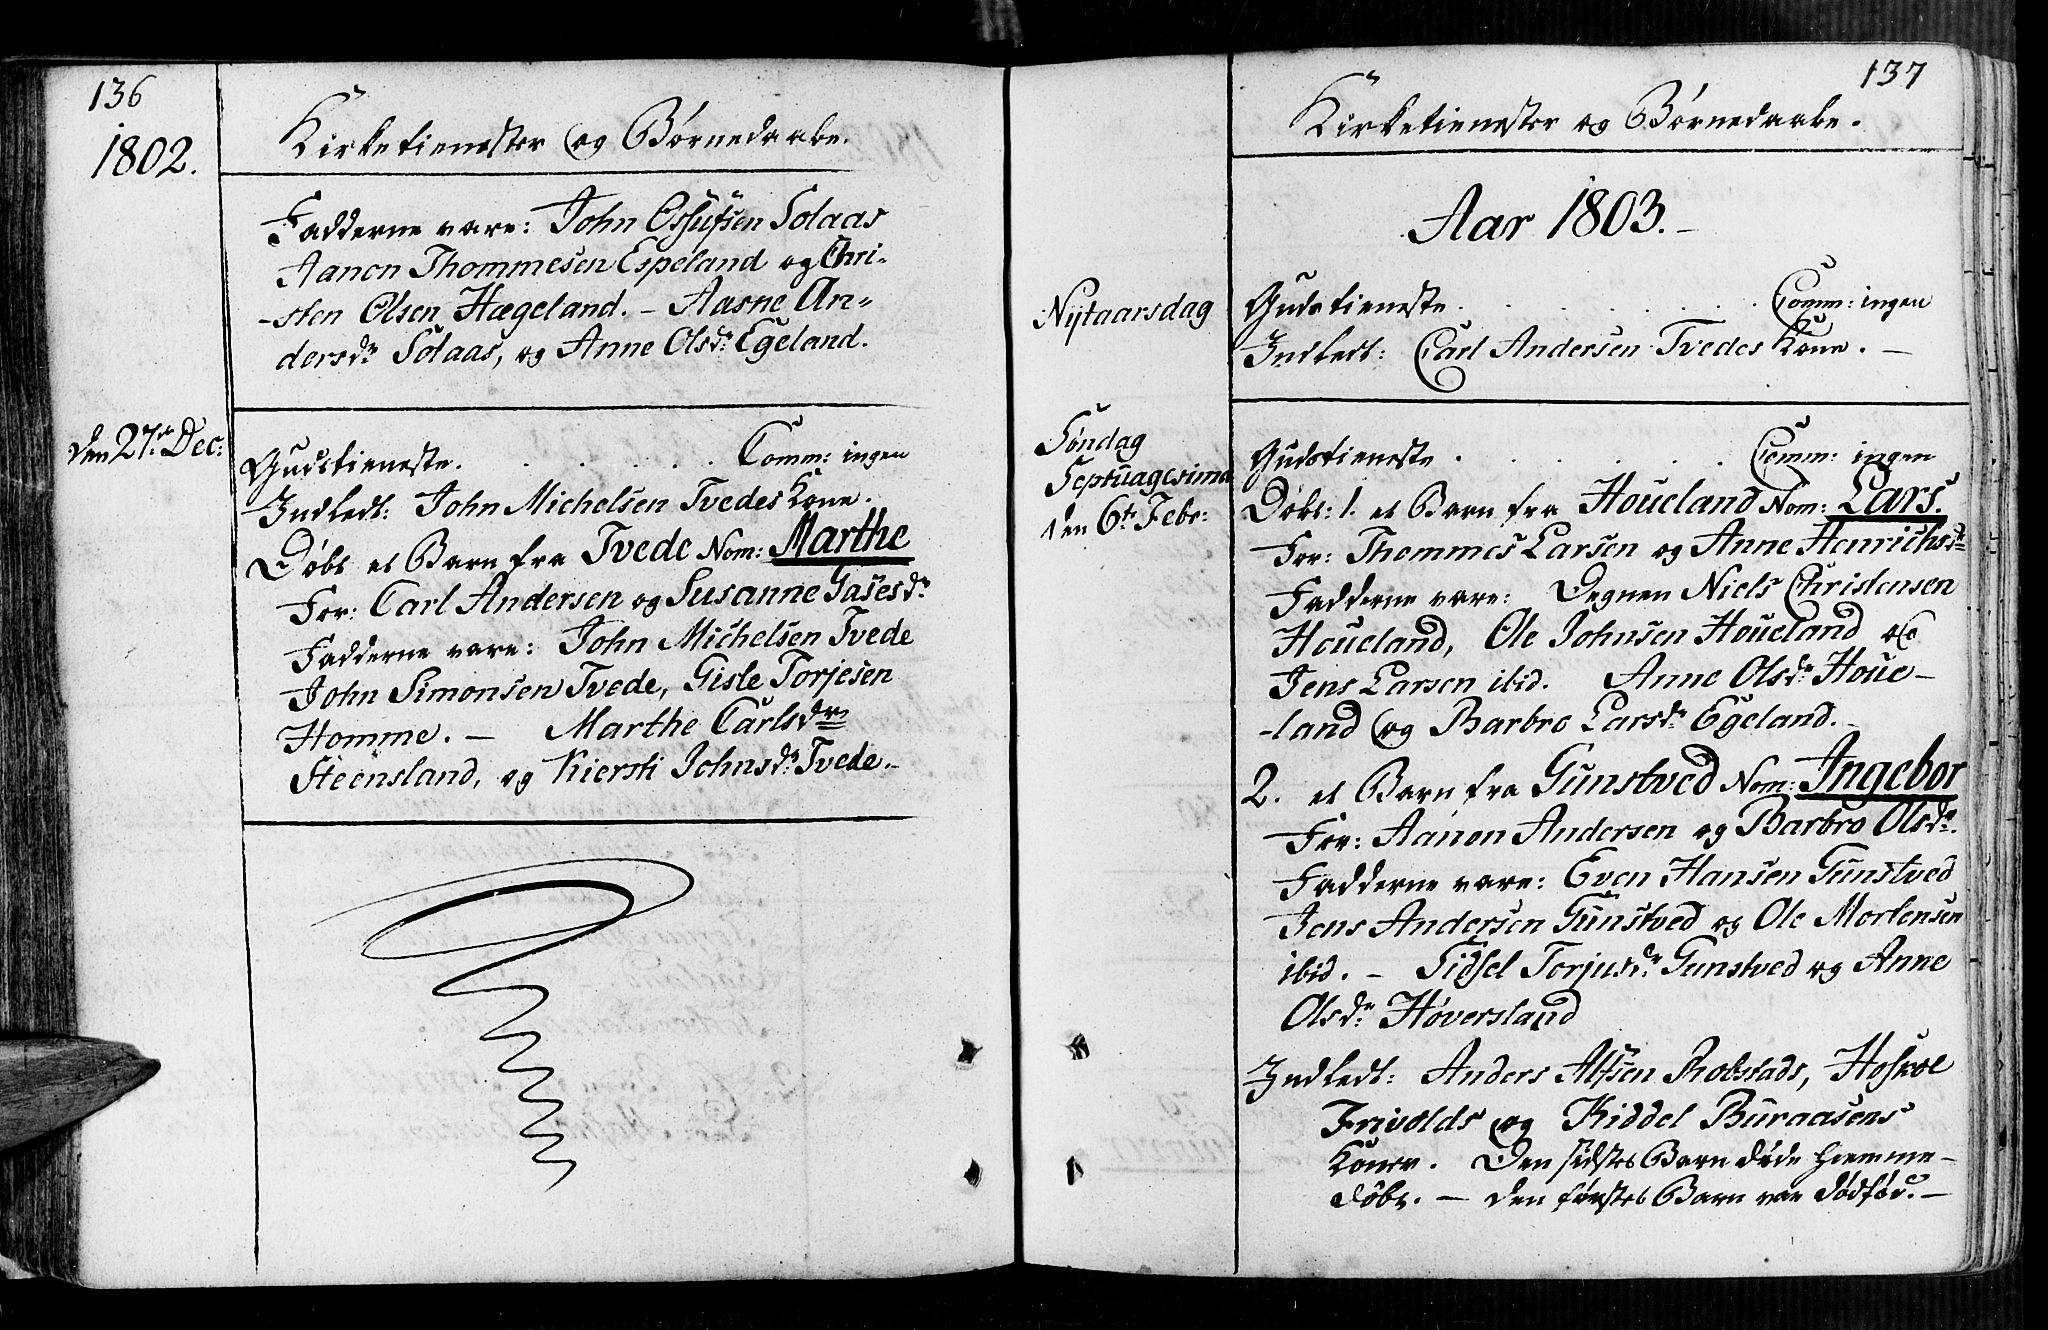 136
1802.
Kirketienester og Børnedaabe.
Fadderne vare: John Ossufsen Solaas
Aanon Thommesen Espeland og Chri-
-sten Olsen Hægeland. - Aasne An-
dersdr. Solaas, og Anne Olsdr. Egeland.
den 27de Dec:
Gudstieneste. . . . . . Comm: ingen
Indledt: John Michelsen Tvedes Kone.
Døbt et Barn fra Tvede Nom: Marthe
For: Carl Andersen og Susanne Gasesdr.
Fadderne vare: John Michelsen Tvede
John Simonsen Tvede, Gisle Torjesen
Homme. - Marthe Carlsdr.
Steensland, og Kiersti Johnsdr. Tvede. -
137
Kirketienester og Børnedaabe.
Aar 1803. -
Nytaarsdag
Gudstieneste . . . . . . Comm: ingen
Indledt: Carl Andersen Tvedes Kone. -
Søndag
Septuagesima
den 6te Febr:
Gudstieneste . . . . . Comm: ingen
Døbt: 1. et Barn fra Houeland Nom: Lars.
For: Thommes Larsen og Anne Henrichsdr.
Fadderne vare: Degnen Niels Christensen
Houeland, Ole Johnsen Houeland og
Jens Larsen ibid. Anne Olsdr. Houe-
-land og Barbro Larsdr. Egeland. -
2. et Barn fra Gunstved Nom: Ingebor
For: Aanon Andersen og Barbro Olsdr.
Fadderne vare: Even Hansen Gunstved
Jens Andersen Gunstved og Ole Mortensen
ibid. - Sidsel Torjusdr. Gunstved og Anne
Olsdr. Høversland
Indledt: Anders Alfsen Robstads,
Frivolds og Kiddel Buraasens
Koner. Den sidstes Barn døde hiemme-
døbt. - den førstes Barn var dødfød. -